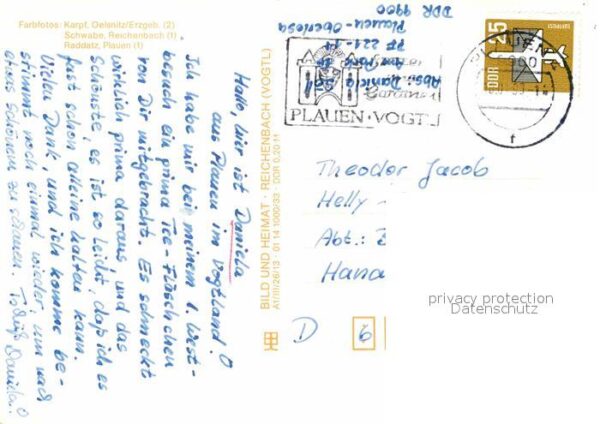 Farbfotos: Karpf, Oelsnitz/Erzgeb. (2)
Schwabe, Reichenbach (1)
Raddatz, Plauen (1)
Hallo, hier ist Daniela
aus Plauen im Vogtland!
Ich habe mir bei meinem 1. West-
besuch ein prima Tee-Fläschchen
von Dir mitgebracht. Es schmeckt
wirklich prima daraus, und das
Schönste, es ist so leicht, daß ich es
fast schon alleine halten kann.
Vielen Dank, und ich komme be-
stimmt noch einmal wieder, um nach
etwas Schönem zu schauen. Tschüß Daniela.
BILD UND HEIMAT · REICHENBACH (VOGTL)
A1/III/26/13 · 01 14 1000/33 · DDR 0,20 M
Abs. Daniela
Am
PF 221-14
Plauen-Oberlosa
DDR 9900
PLAUEN · VOGTL
PLAUEN
9900
f
DDR
25
Theodor Jacob
Helly
Abt.:
Hana
D
6
privacy protection
Datenschutz